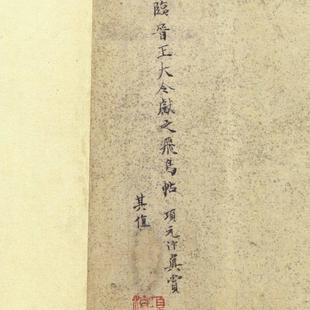 臨晉王大令獻之飛鳥帖 項元汴真賞
其值